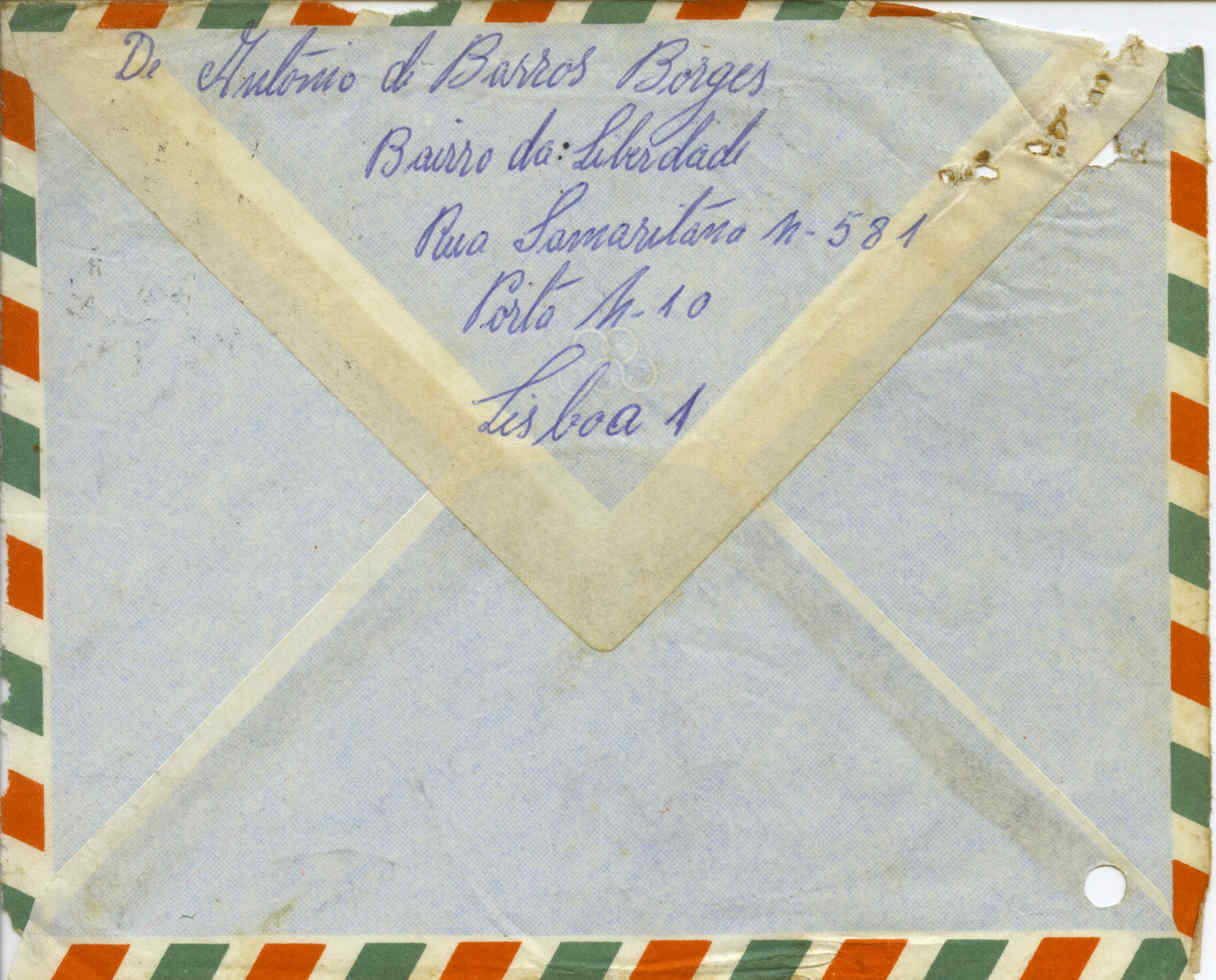 De António de Barros Borges
Bairro da: Liberdade
Rua Samaritána N-581
Porta N-10
Lisboa 1